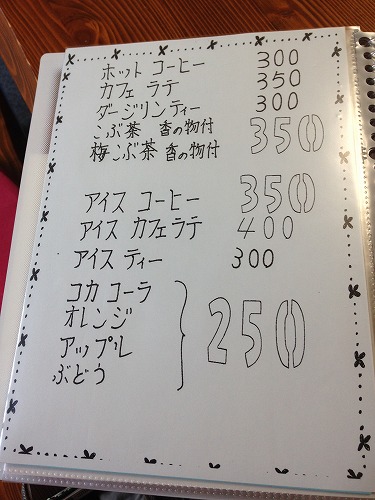 ホット コーヒー 300
カフェ ラテ 350
ダージリンティー 300
こぶ茶 香の物付 350
梅こぶ茶 香の物付
アイス コーヒー 350
アイス カフェラテ 400
アイス ティー 300
コカ コーラ
オレンジ
アップル
ぶどう
250